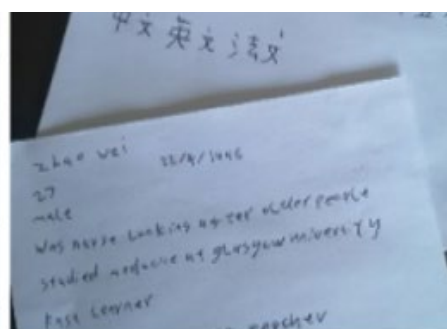 中文 英文 法文
zhao wei
27
male
was nurse looking after older people
studied medicine at glasgow university
Fast Learner